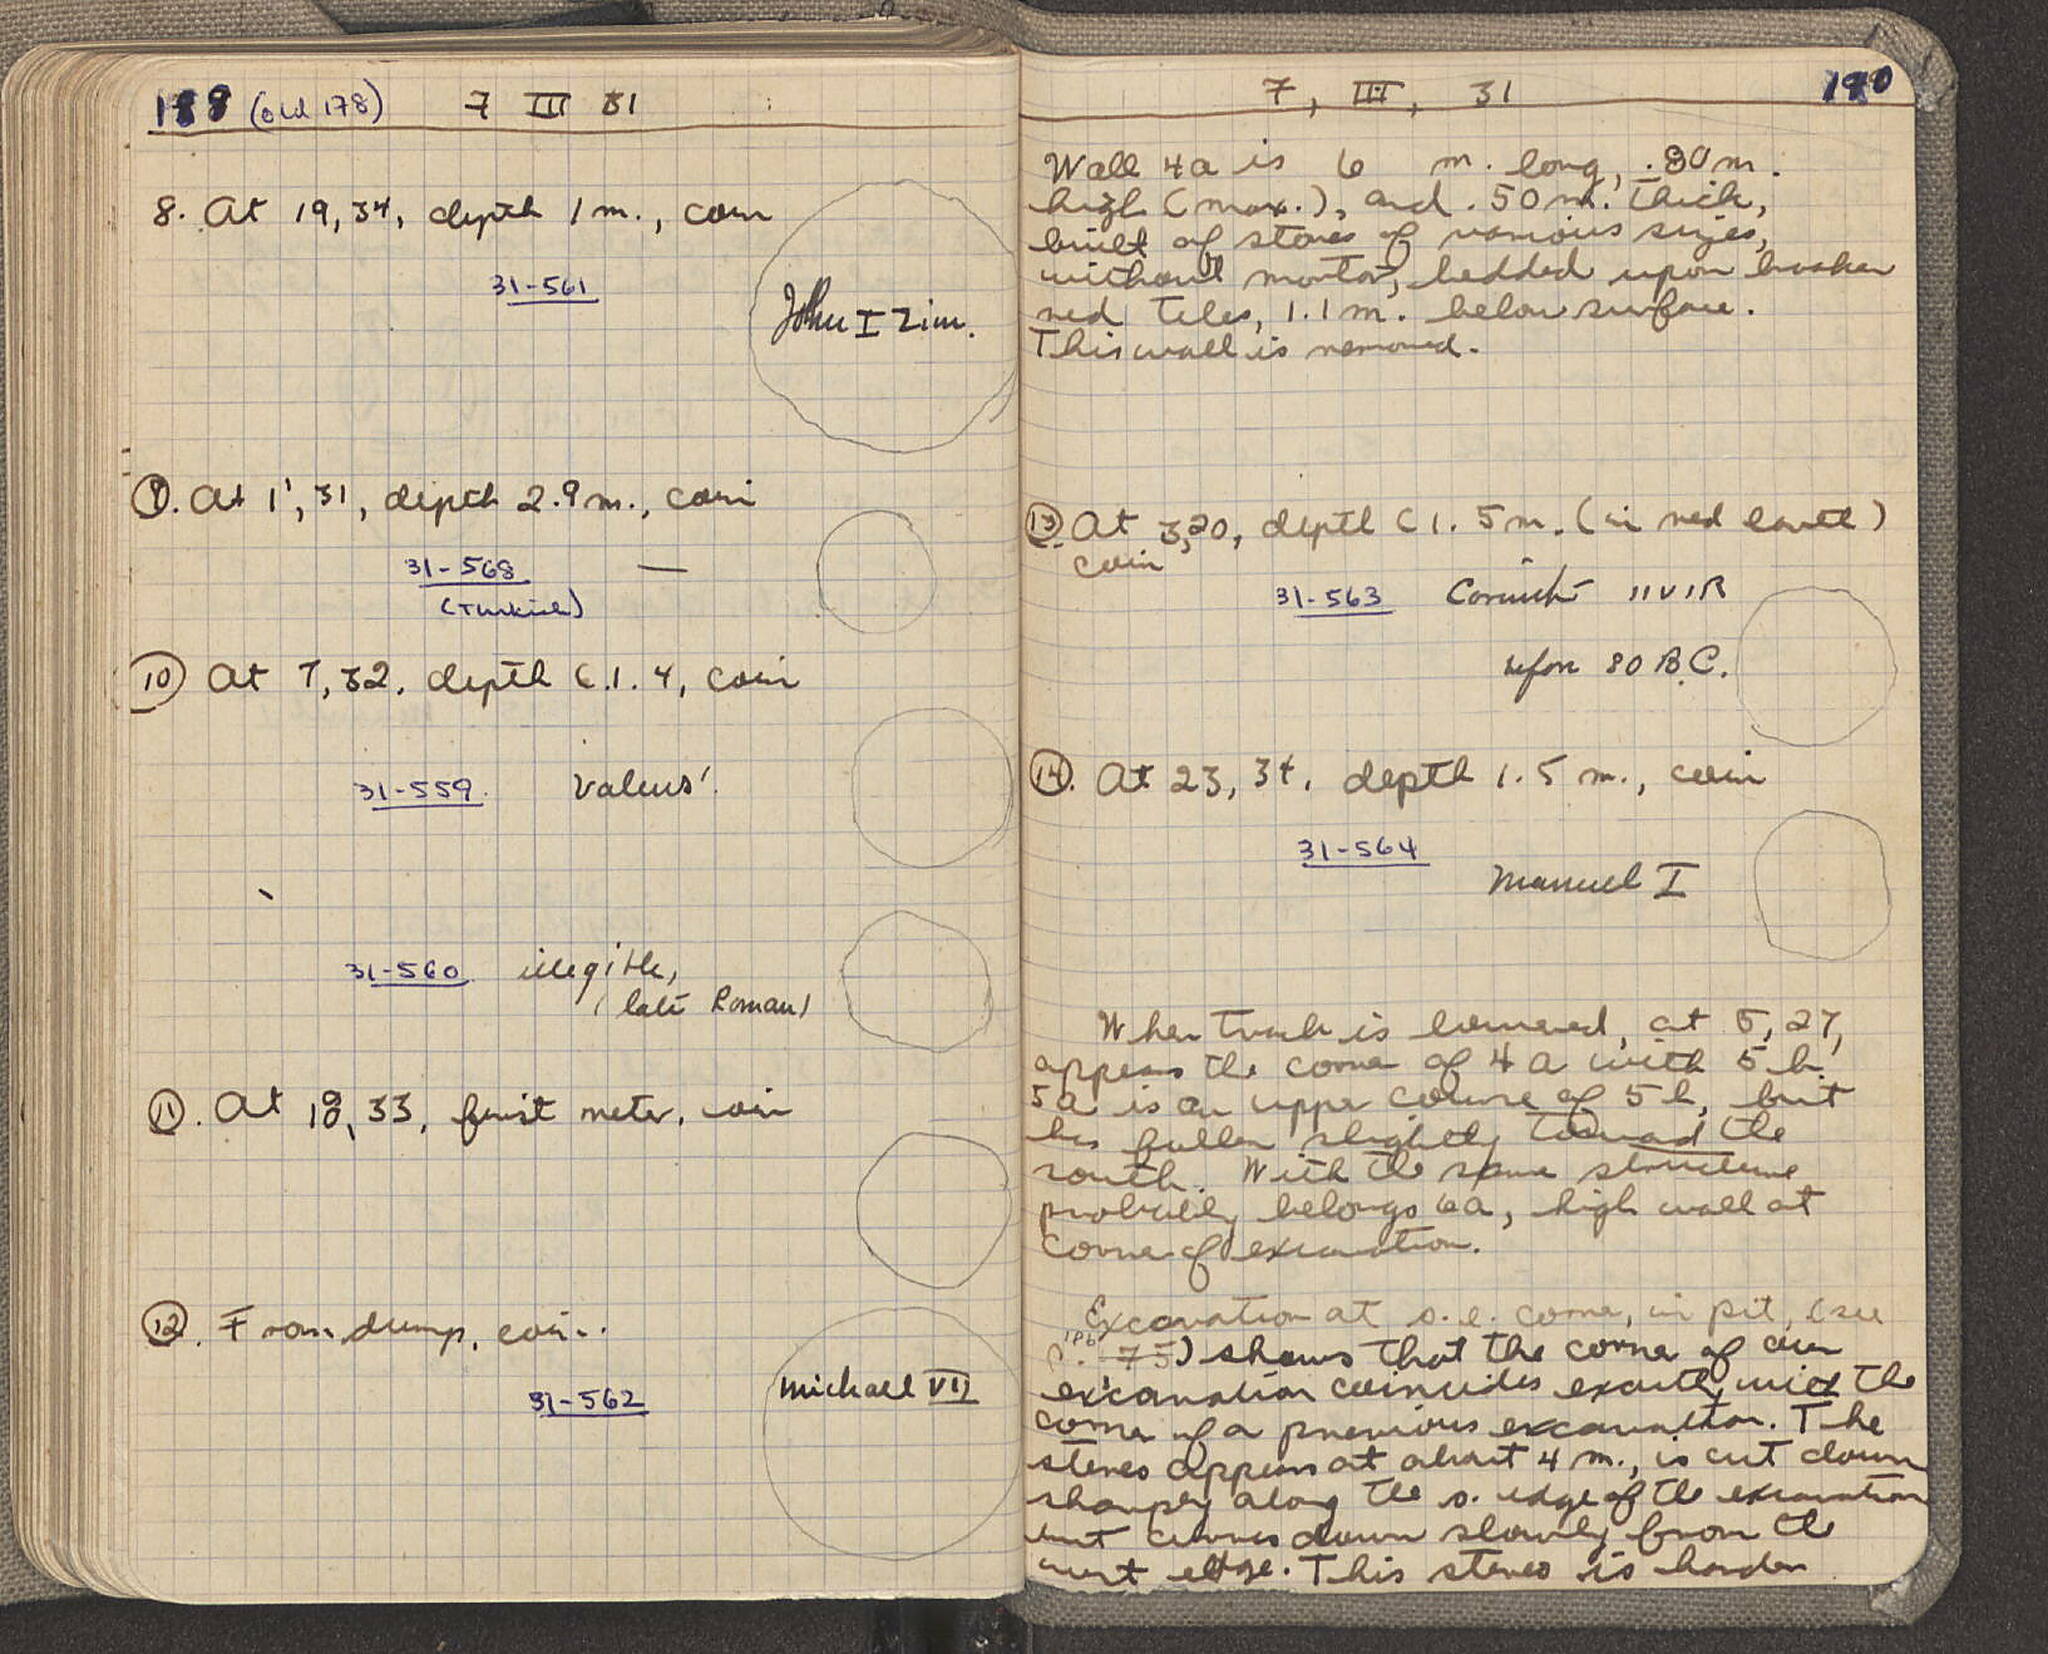 188 (old 178) 7 III 31
8. At 19, 34, depth 1 m., coin
31-561
John I Zim.
9. At 1', 31, depth 2.9 m., coin
31-568 —
(Turkish)
10 At 7, 32, depth c.1.4, coin
31-559. Valens'.
31-560 illegible,
(late Roman)
11. At 19, 33, first meter, coin
12. From dump, coin.
31-562 Michael VII
7, III, 31 190
Wall 4a is 6 m. long, .80 m.
high (max.), and .50 m. thick,
built of stones of various sizes,
without mortar, bedded upon broken
red tiles, 1.1 m. below surface.
This wall is removed.
13. At 3,20, depth c 1.5 m. (in red earth)
coin
31-563 Corinth IIVIR
80 B.C.
14. At 23, 34, depth 1.5 m., coin
31-564
Manuel I
When track is lowered, at 5, 27,
appears the corner of 4a with 5b.
5a is an upper course of 5b, but
has fallen slightly toward the
south. With the same structure
probably belongs 6a, high wall at
corner of excavation.
Excavation at s.e. corner, in pit, (see
p. 75) shows that the corner of our
excavation coincides exactly with the
corner of a previous excavation. The
stereo appears at about 4 m., is cut down
sharply along the s. edge of the excavation
but curves down slowly from the
west edge. This stereo is harder